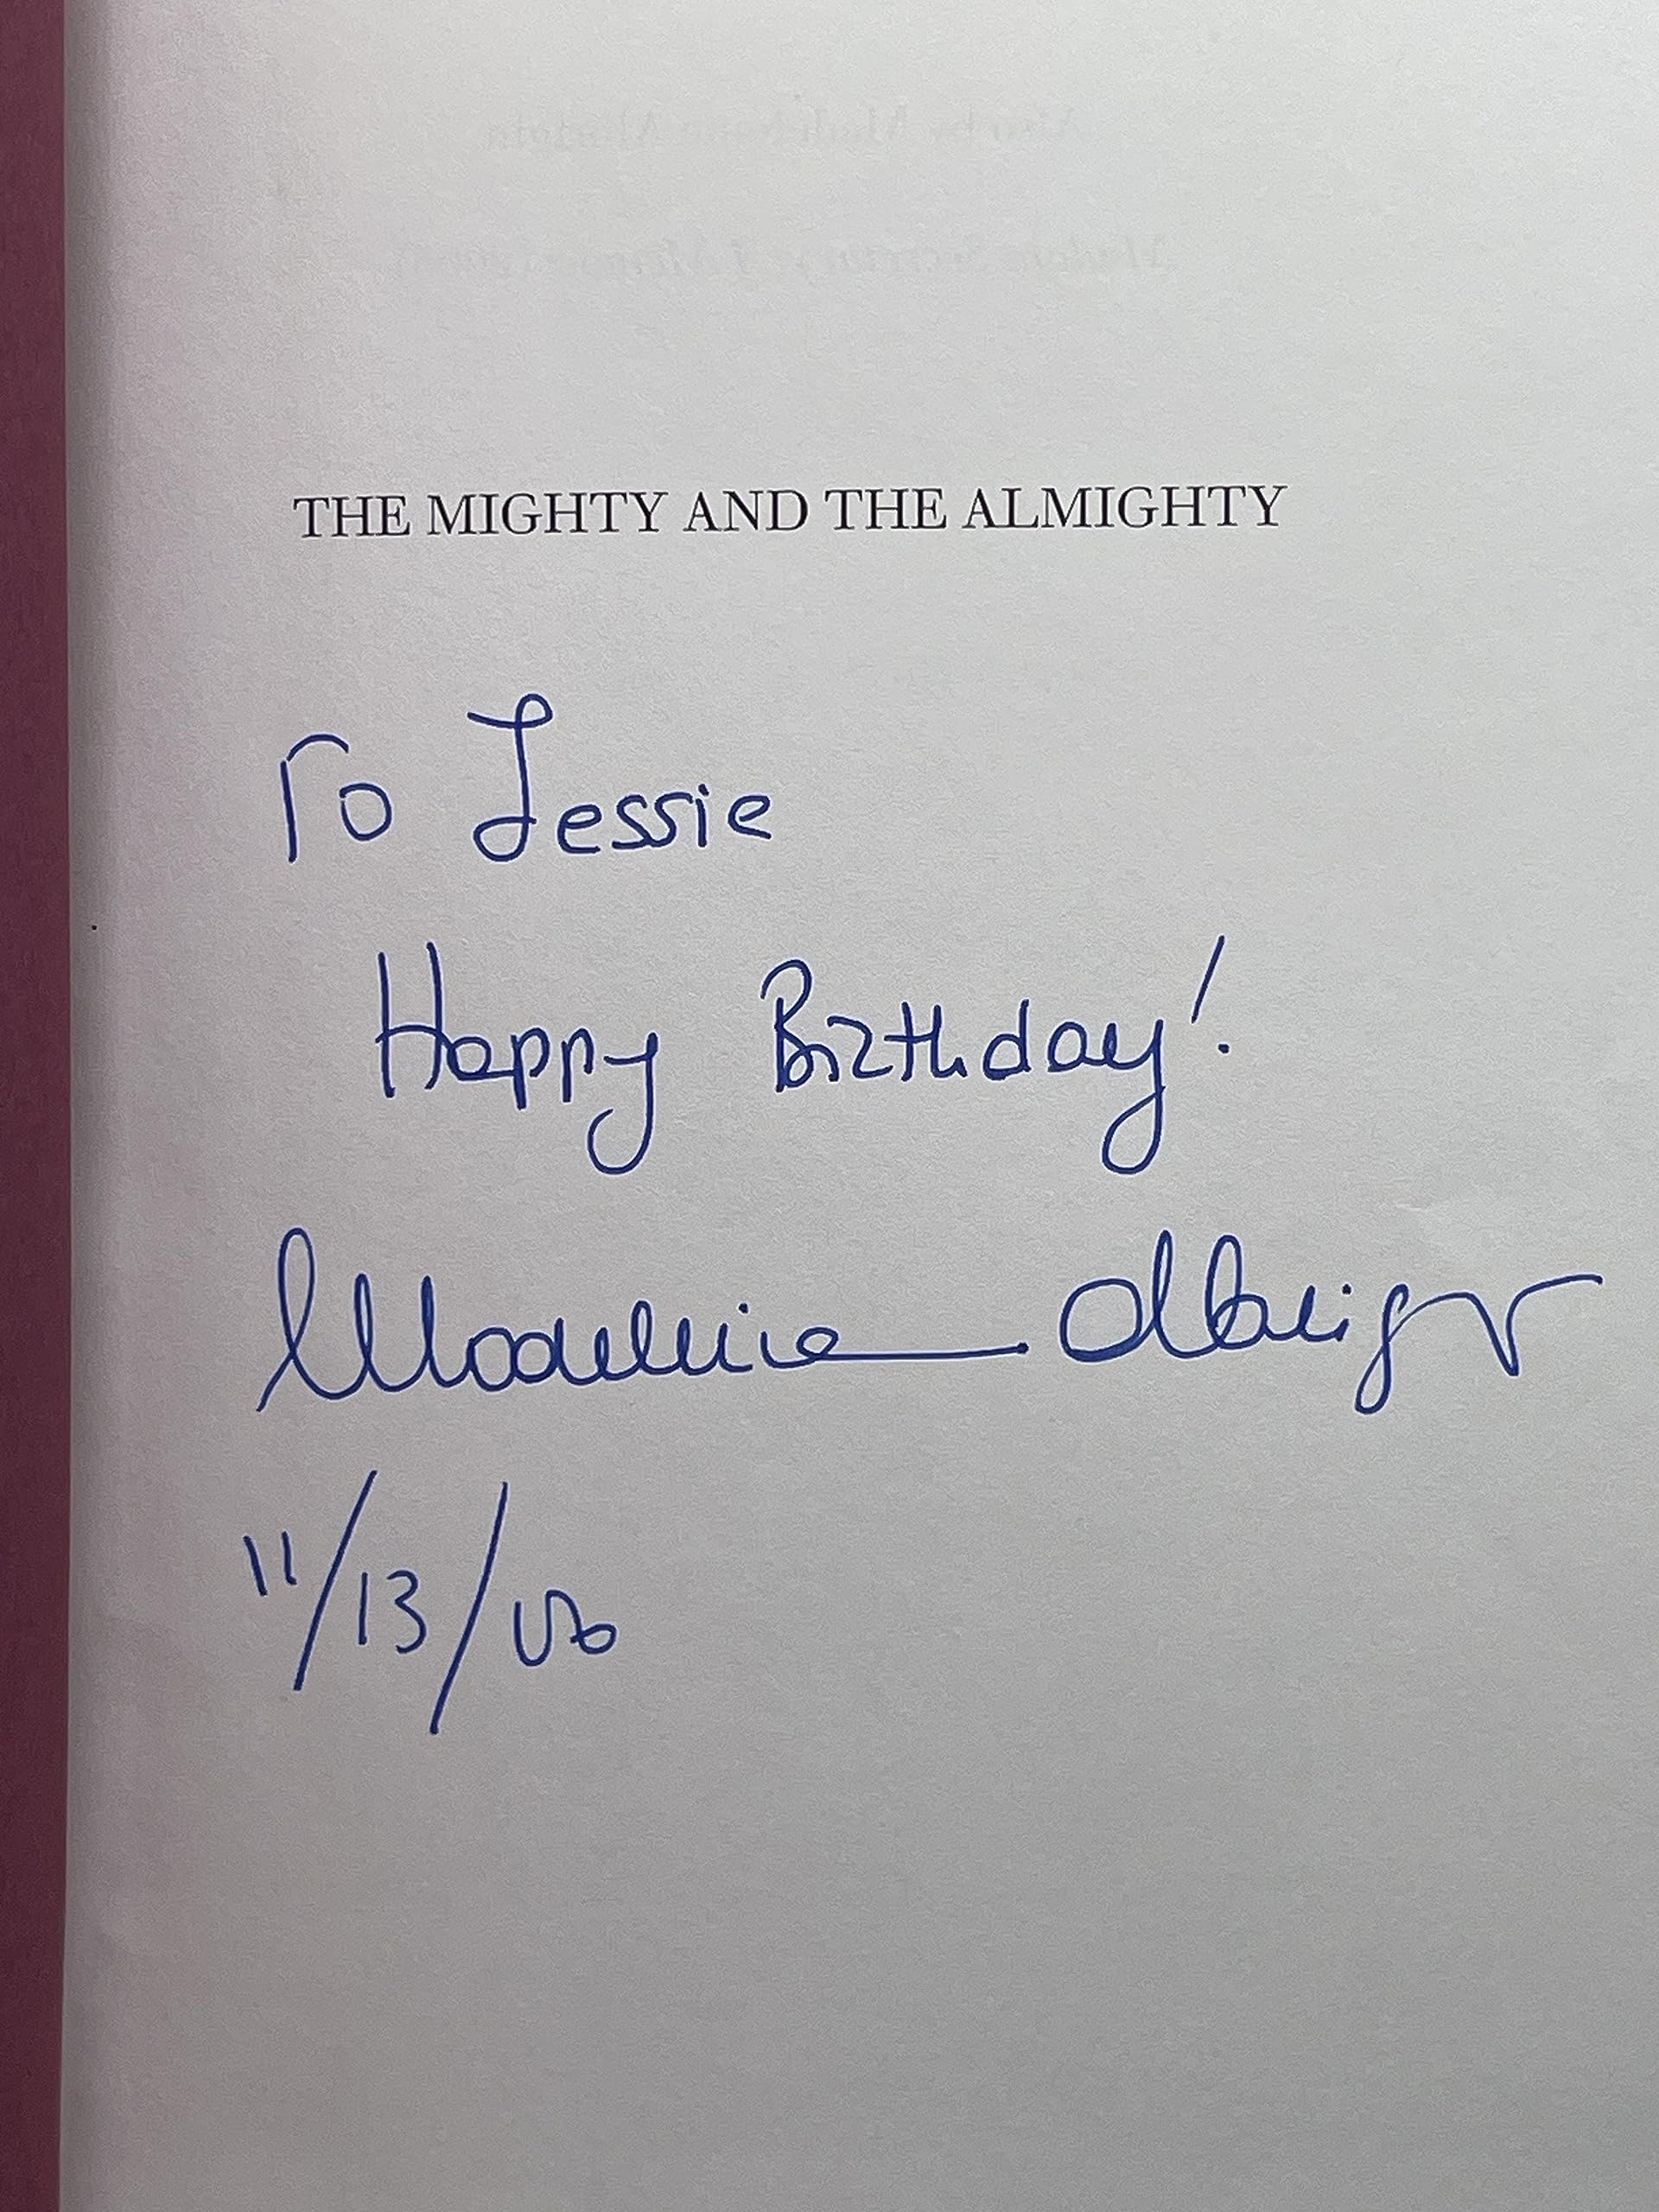 THE MIGHTY AND THE ALMIGHTY
To Jessie
Happy Birthday!
Madeleine Albright
11/13/06